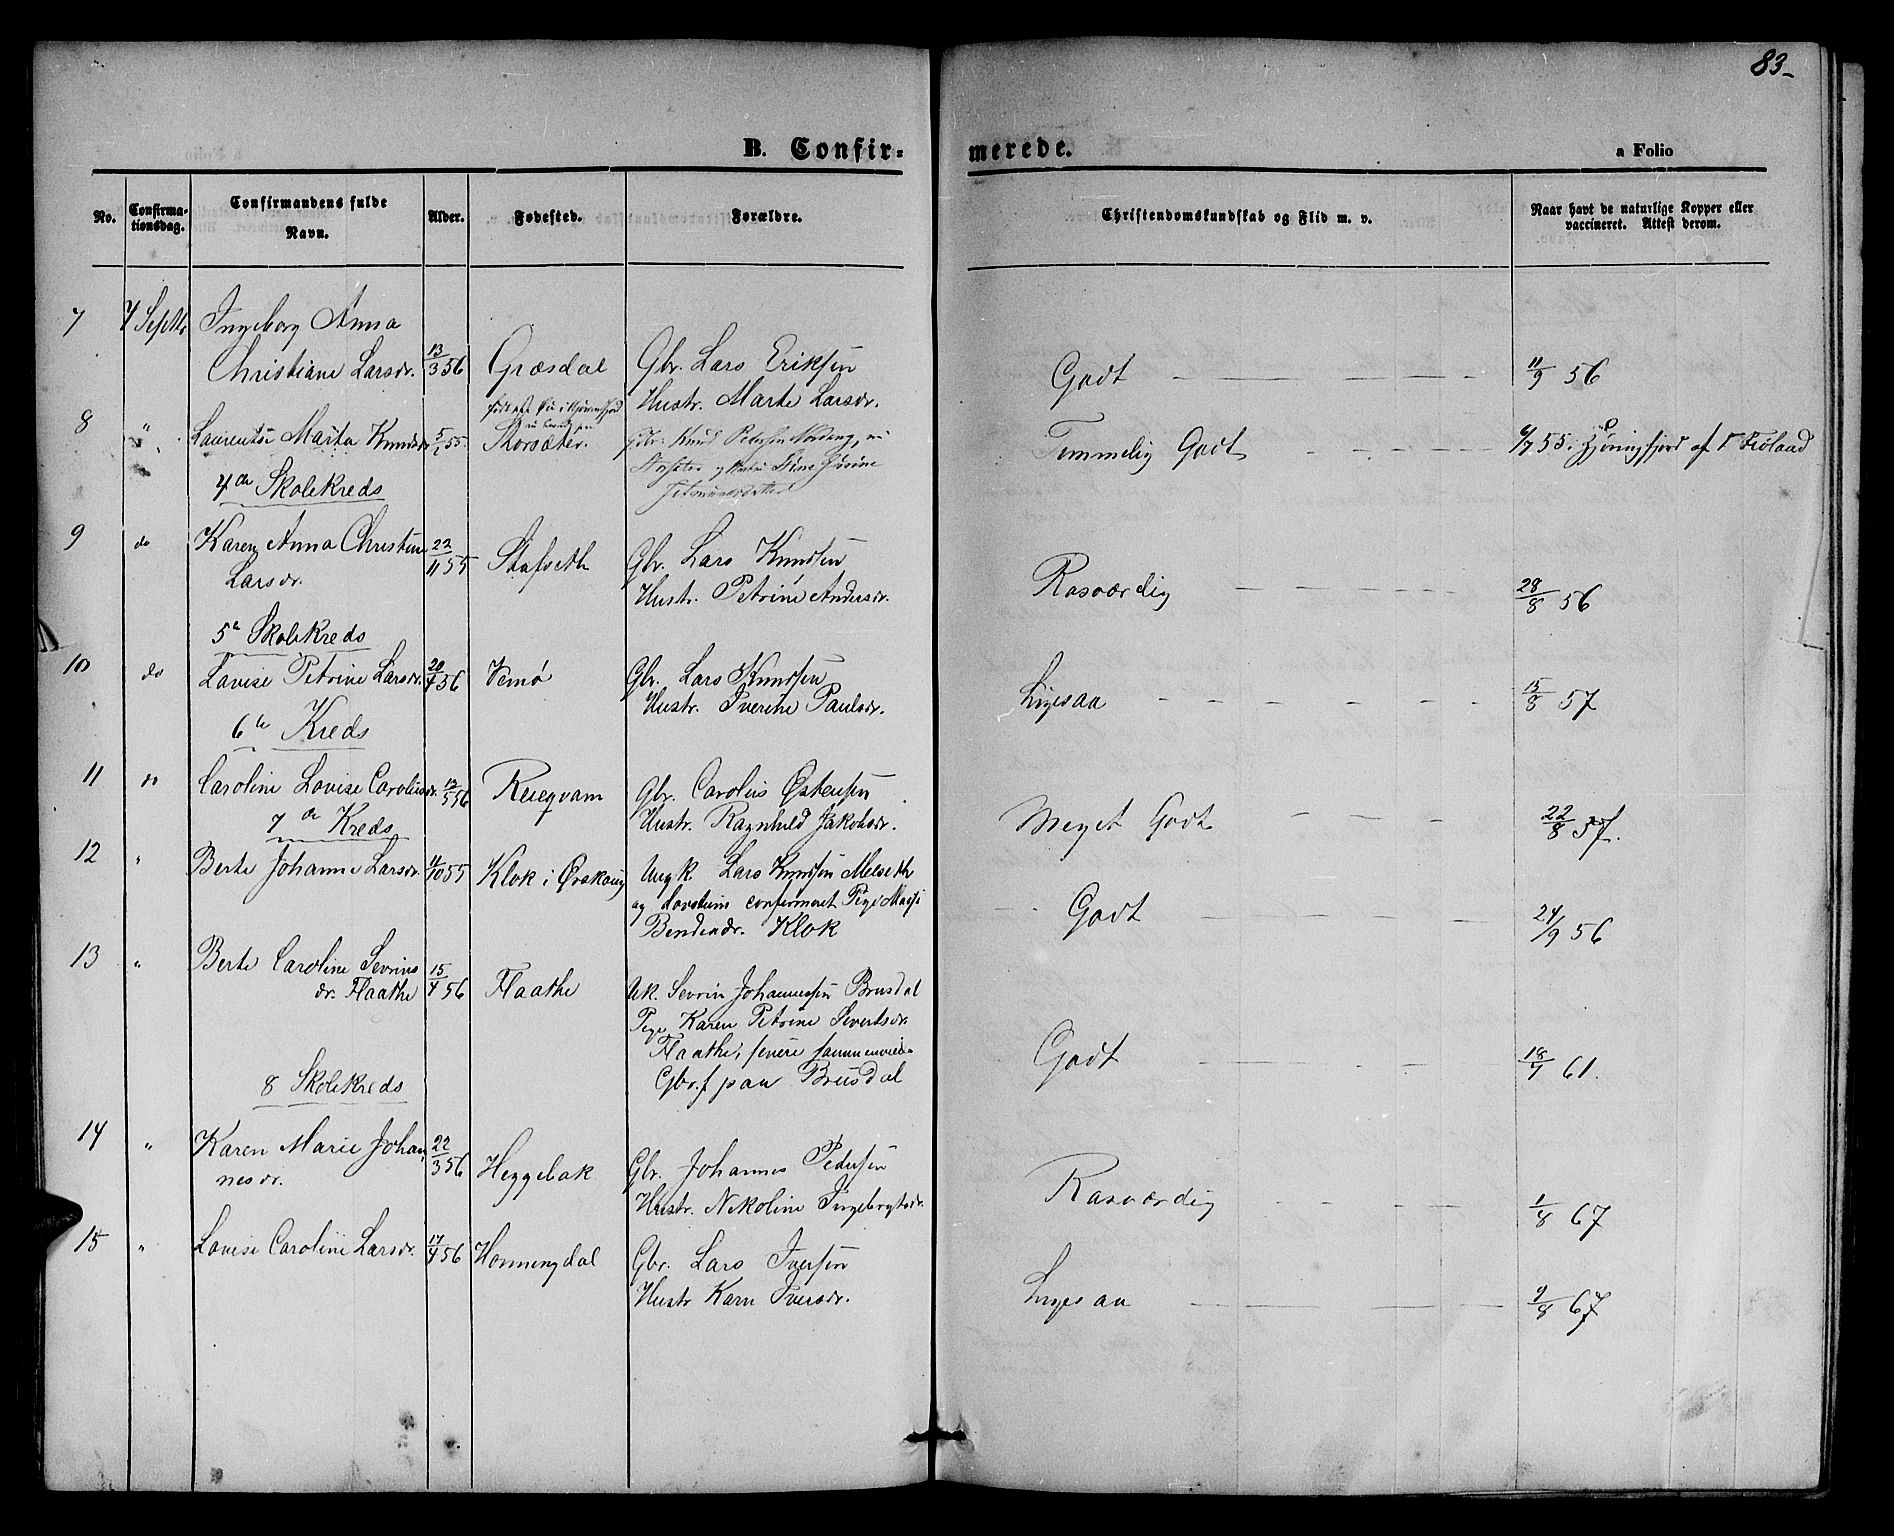 83-
B. Confir-
merede.
a Folio
No.
Confirma-
tionsdag.
Confirmandens fulde
Navn.
Alder.
Fødested.
Forældre.
Christendomskundskab og Flid m. v.
Naar havt de naturlige Kopper eller
vaccineret. Attest derom.
7 7 Septbr Ingeborg Anna
Christiane Larsdr. 13/3 56 Græsdal Gbr. Lars Eriksen
Hustr. Marte Larsdr.
Godt 11/9 56
8 " Laurentse Marta Knudsdr 5/1 55. Storsæter. Gbr. Knud Petersen
Temmelig Godt 6/7 55. Hjøringfjord af
4de Skolekreds
9 do Karen Anna Christine 22/11 55 Stafseth Gbr. Lars Knudsen
Larsdr. Hustr. Petrine Andersdr.
Rosværdig 28/8 56
5te Skolekreds
10 do Lovise Petrine Larsdr. 20/4 56 Vemø Gbr. Lars Knudsen
Hustr. Iverine Paulsdr.
Ligesaa 15/8 57
6te Kreds
11 do Caroline Lovise Carolusdr. 12/5 56 Reiegvam Gbr. Carolus Østensen
Hustr. Ragnhild Jakobsdr.
Meget Godt 22/8 57.
7de Kreds
12 " Berte Johanne Larsdr. 4/10 55 Klok i Ørskoug Ungk. Lars Knudsen Melseth
og dovotum confirmeret Pige
Bendixdr. Klok
Godt 24/9 56
13 " Berte Caroline Sevrins
dr. Flaathe 15/4 56 Flaathe Uk. Sevrin Johannessen Brusdal
Pige Karen Petrine Sivertsdr.
Flaathe, senere sammenviede
Gbr.f. paa Brusdal
Godt 18/7 61.
8 Skolekreds
14 " Karen Marie Johan
nesdr. 22/3 56 Heggebak Gbr. Johannes Pedersen
Hustr. Nikoline Ingebrigtsdr.
Rosværdig 1/8 67
15 " Lovise Caroline Larsdr. 17/4 56 Honningdal Gbr. Lars Iversen
Hustr Karn Iversdr.
Ligesaa 9/8 67